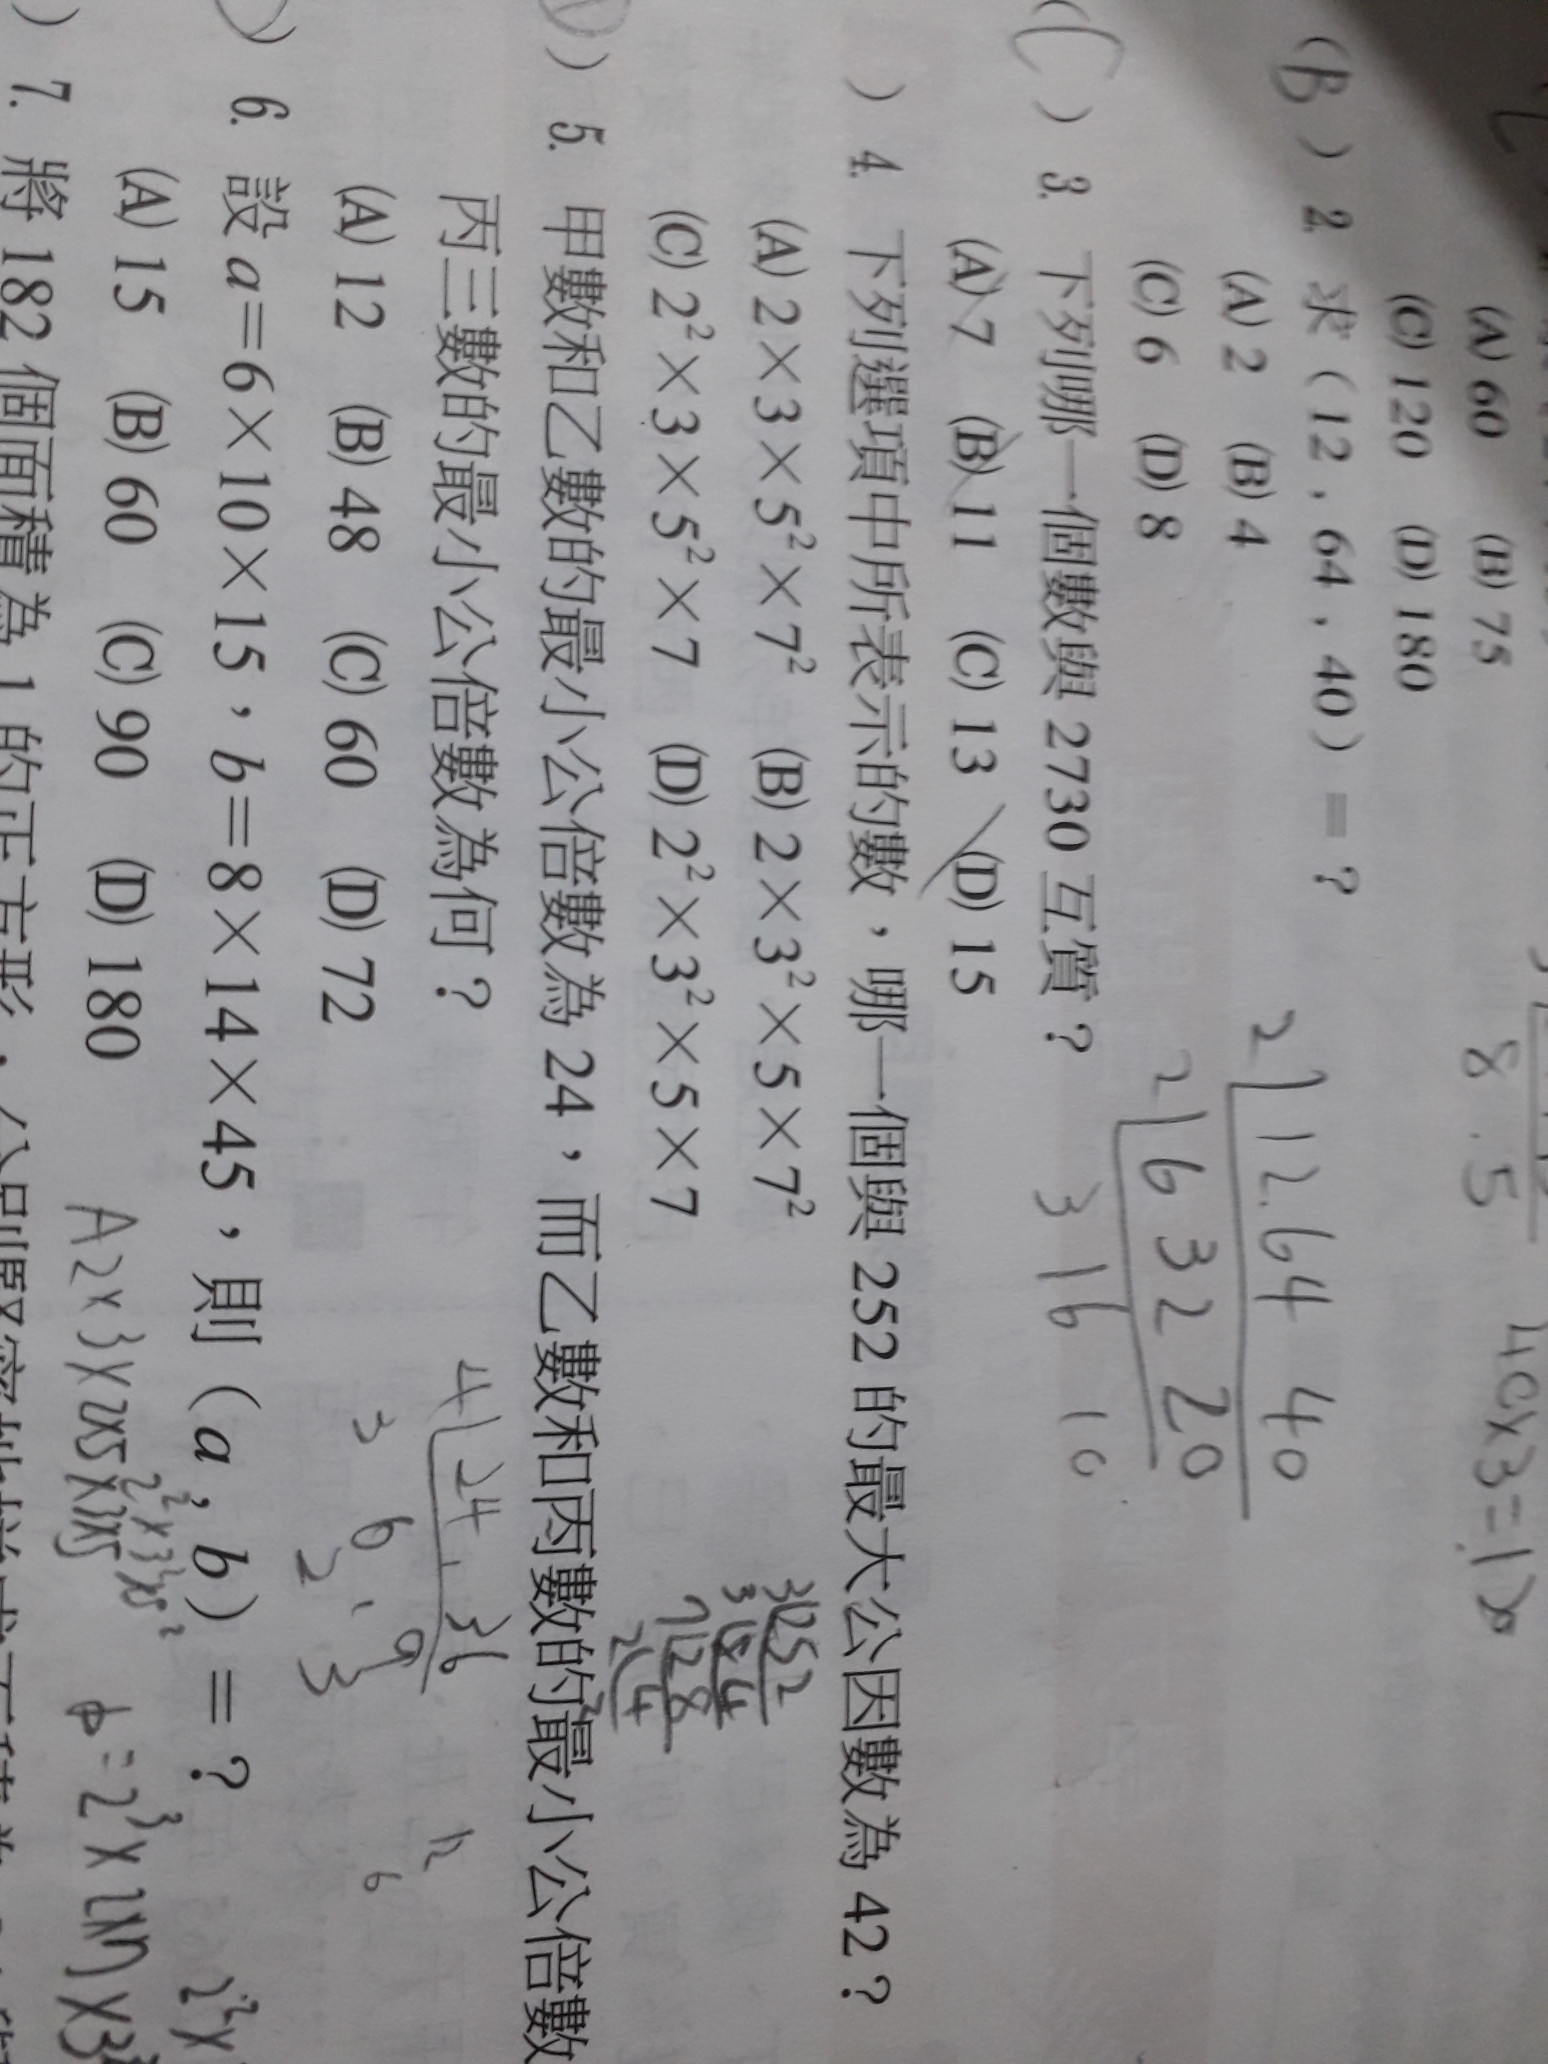 (A) 60 (B) 75
(C) 120 (D) 180
8.5
40×3=
(B) 2. 求(12,64,40)=?
(A) 2 (B) 4
(C) 6 (D) 8
2 12.64 40
2 6 32 20
3 16 10
(C) 3. 下列哪一個數與 2730 互質?
(A) 7 (B) 11 (C) 13 (D) 15
) 4. 下列選項中所表示的數,哪一個與 252 的最大公因數為 42?
(A) 2×3×5²×7² (B) 2×3²×5×7²
(C) 2²×3×5²×7 (D) 2²×3²×5×7
3 252
3 84
7 28
2 4
2
) 5. 甲數和乙數的最小公倍數為 24,而乙數和丙數的最小公倍數
丙三數的最小公倍數為何?
(A) 12 (B) 48 (C) 60 (D) 72
4 24 , 36
3 6 , 9
2 3
12
6
) 6. 設 a=6×10×15,b=8×14×45,則(a,b)=?
(A) 15 (B) 60 (C) 90 (D) 180
2²×3²×5²
A 2×3×2×5×3×5
b=2³×2×7×3²
2²×
) 7. 將 182 個面積為 1 的正方形,